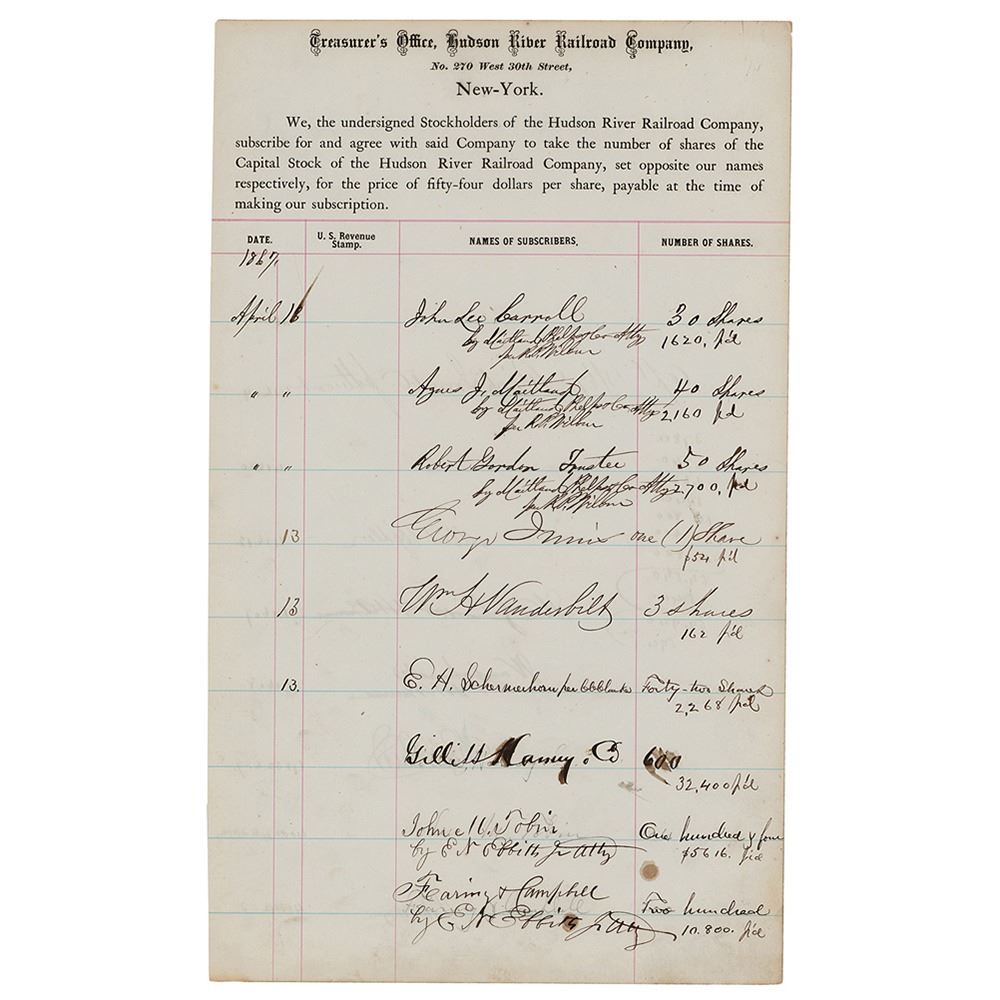 Treasurer's Office, Hudson River Railroad Company,
No. 270 West 30th Street,
New-York.
We, the undersigned Stockholders of the Hudson River Railroad Company,
subscribe for and agree with said Company to take the number of shares of the
Capital Stock of the Hudson River Railroad Company, set opposite our names
respectively, for the price of fifty-four dollars per share, payable at the time of
making our subscription.
DATE. U. S. Revenue Stamp. NAMES OF SUBSCRIBERS, NUMBER OF SHARES.
1867,
April 16 John Lee Carroll 30 Shares
by Maitland Phelps & Co Atty 1620, p'd
per R.P. Wilbur
" " Agnes J. Maitland 40 Shares
by Maitland Phelps & Co Atty 2,160 p'd
per R.P. Wilbur
" " Robert Gordon Trustee 50 Shares
by Maitland Phelps & Co Atty 2,700, p'd
per R.P. Wilbur
13 George Innis one (1) Share
$54 p'd
13 Wm H Vanderbilt 3 shares
162 p'd
13. E. H. Schermerhorn per Forty-two Shares
2,268 p'd
& Co 600
32,400 p'd
John M. Tobin One hundred & four
by E N Ebbitts Jr Atty $5616. p'd
& Campbell Two hundred
by E N Ebbitts Jr Atty 10.800. p'd